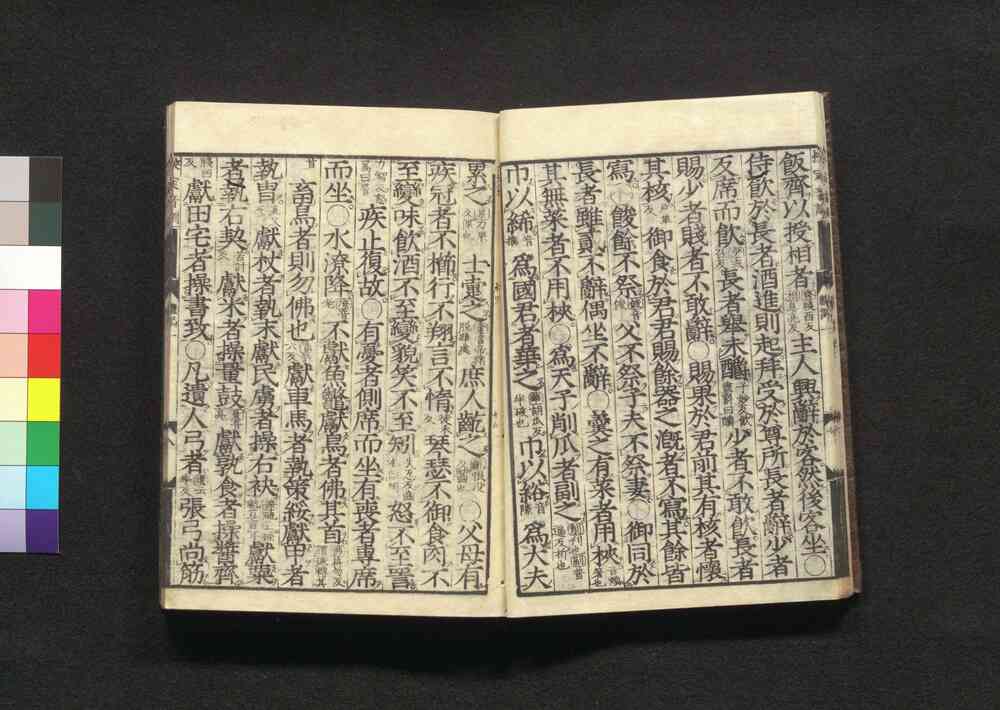 飯齊以授相者主人興辭於客然後客坐〇
侍飲於長者酒進則起拜受於尊所長者辭少者
反席而飲長者舉未釂少者不敢飲長者
賜少者賤者不敢辭〇賜果於君前其有核者懷
其核御食於君君賜餘器之漑者不寫其餘皆
寫〇餕餘不祭父不祭子夫不祭妻〇御同於
長者雖貳不辭偶坐不辭〇羹之有菜者用梜
其無菜者不用梜〇為天子削瓜者副之
巾以絺為國君者華之巾以綌為大夫
累之士疐之庶人齕之〇父母有
疾冠者不櫛行不翔言不惰琴瑟不御食肉不
至變味飲酒不至變貌笑不至矧怒不至詈
疾止復故〇有憂者側席而坐有喪者專席
而坐〇水潦降不獻魚鼈獻鳥者佛其首
畜鳥者則勿佛也獻車馬者執策綏獻甲者
執冑獻杖者執末獻民虜者操右袂獻粟
者執右契獻米者操量鼓獻孰食者操醬齊
獻田宅者操書致〇凡遺人弓者張弓尚筋